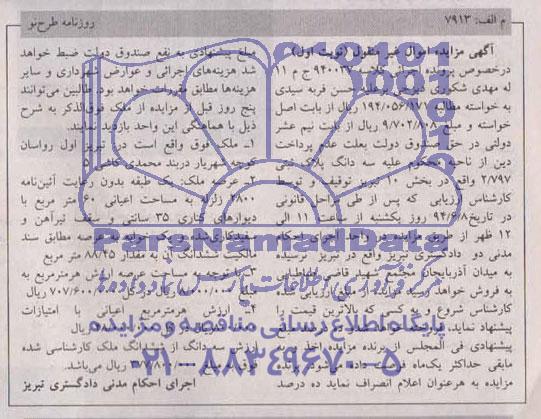 م الف: ۷۹۱۳
روزنامه طرح‌نو
آگهی مزایده اموال غیر منقول (نوبت اول)
درخصوص پرونده اجرائی ۹۴۰۰۳ ج م ۱۱
له مهدی شکوری درخش برعلیه حسن قربه سیدی
به خواسته مطالبه ۱۹۴/۰۵۶/۱۷۱ ریال از بابت اصل
خواسته و مبلغ ۹/۷۰۲/۸۰۸ ریال از بابت نیم عشر
دولتی در حق صندوق دولت بعلت عدم پرداخت
دین از ناحیه محکوم علیه سه دانگ پلاک ثبتی
۲/۷۹۷ واقع در بخش ۱۰ تبریز توقیف و توسط
کارشناس ارزیابی که پس از طی مراحل قانونی
در تاریخ ۹۴/۶/۸ روز یکشنبه از ساعت ۱۱ الی
۱۲ ظهر از طریق مزایده در واحد اجرای احکام
مدنی دو دادگستری تبریز واقع در تبریز نرسیده
به میدان آذربایجان مجتمع شهید قاضی طباطبایی
به فروش خواهد رسید مزایده از مبلغ ارزیابی شده
کارشناس شروع و به کسی که بالاترین قیمت را
پیشنهاد نماید
پیشنهادی فی المجلس از برنده مزایده اخذ و به
مابقی حداکثر یک‌ماه فرصت داده می‌شود برنده
مزایده به هرعنوان اعلام انصراف نماید ده درصد
مبلغ پیشنهادی به نفع صندوق دولت ضبط خواهد
شد هزینه‌های اجرائی و عوارض شهرداری و سایر
هزینه‌ها مطابق مقررات خواهد بود. طالبین می‌توانند
پنج روز قبل از مزایده از ملک فوق‌الذکر به شرح
ذیل با هماهنگی این واحد بازدید نمایند.
۱ـ ملک فوق واقع است در تبریز اول رواسان
کوچه شهریار دربند محمدی کاشی ۵
۲ـ عرصه ملک: یک طبقه بدون رعایت آئین‌نامه
۲۸۰۰ زلزله به مساحت اعیانی ۶۰ متر مربع با
دیوارهای کناری ۳۵ سانتی و سقف تیرآهن و
سفیدکاری شده عرصه مطابق سند
مالکیت ششدانگ آن به مقدار ۸۸/۴۵ متر مربع
۳ـ با توجه به مساحت عرصه ارزش هرمترمربع به
ریال ۷۰۷/۶۰۰/۰۰۰ ریال
۴ـ ارزش هرمترمربع اعیانی با امتیازات
ارزش سه دانگ از ششدانگ ملک کارشناسی شده
فوق به مبلغ ریال می‌باشد.
اجرای احکام مدنی دادگستری تبریز
ParsNamadData
پایگاه اطلاع رسانی مناقصه و مزایده
۰۲۱-۸۸۳۴۹۶۷۰-۵